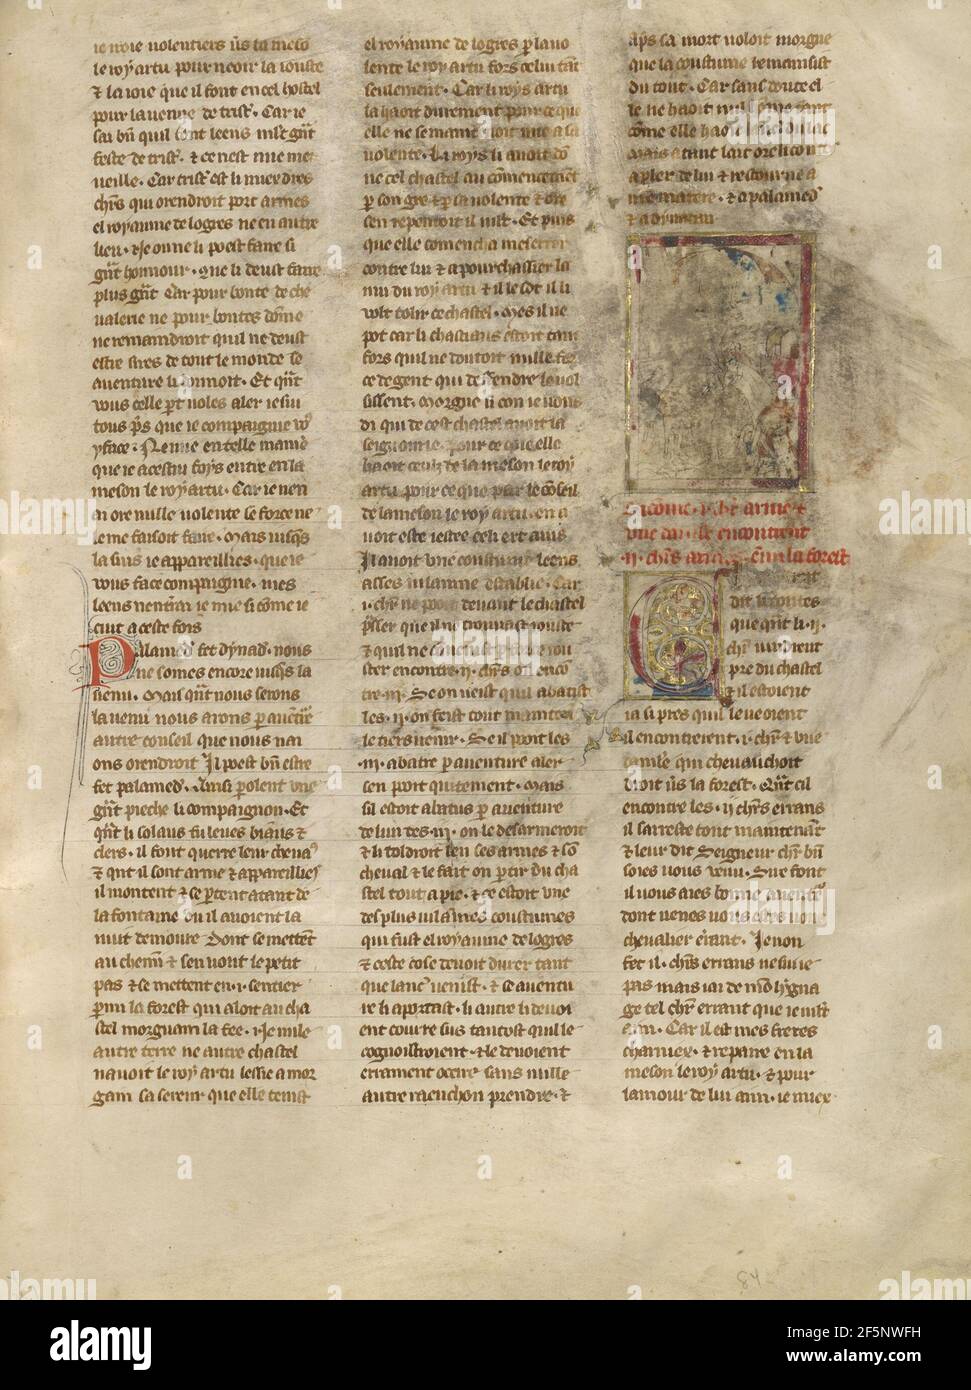 le roy artu pour veoir la iouste
& la ioie que il font en cel hostel
pour la venue de trist'. Car ie
feste de trist'. & ce nest mie mer
ueille. Car trist' est li mieudres
chrs qui orendroit port armes
el royaume de logres ne en autre
lieu. & se on ne li poest faire si
grant honnour. que li deust faire
plus grant Car pour bonte de che
ualerie ne pour bontes dome
ne remaindroit quil ne deust
estre sires de tout le monde se
auenture li donnoit. Et quant
tous pres que ie compaignie vo
que ie a ceste foys entre en la
meson le roy artu. Car ie nen
ai ore nulle volente se force ne
le me faisoit faire. Mais iusques
la sui ie appareillies. que ie
vous face compaignie. mes
leens nenterai ie mie si come ie
cuit a ceste fois
Palamed' fet dynad'. nous
ne somes encore iusques la
uenu. Mais quant nous serons
la uenu nous arons par auenture
autre conseil que nous nai
ons orendroit Il poest bien estre
fet palamed'. Ainsi parolent vne
grant pieche li compaignon. Et
quant li solaus fu leues biaus &
clers. il font querre leur cheuaus
& quant il sont arme & appareillies
il montent & se partent atant de
la fontaine ou il auoient la
nuit demoure Dont se mettent
au chemin & sen uont le petit
pas & se mettent en .i. sentier
parmi la forest qui aloit au cha
stel morguain la fee. Ne mile
autre terre ne autre chastel
nauoit le roy artu lessie a mor
gain sa sereur que elle tenist
el royaume de logres par la vo
lente le roy artu fors celui tant
seulement. Car li roys artu
la haoit durement pour ce que
uolente. Li roys li auoit do
ne cel chastel au commencement
par son gre & par sa uolente & ore
sen repentoit il mlt. Et puis
que elle comencha a meserrer
contre lui & a pourchassier la
mort du roy artu & il le sot il li
volt tolir ce chastel. Mes il ne
pot car li chastiaus estoit tant
fors quil ne doutoit nulle for
ce de gent qui deffendre le uol
sissent. Morgue si con ie uous
di qui de cest chastel auoit la
seignorie. pour ce que elle
haoit ceuz de la meson le roy
artu pour ce que par le conseil
de la meson le roy artu. en a
uoit este iestee celi ert auis
Il auoit vne coustume leens
asses uilaine establie. Car
.i. chr ne poist deuant le chastel
passer que il ne trouuast iouste
tre .iii. Se on ueist quil abatist
les .ii. on feist tout maintenant
le tiers uenir. Se il poit les
.iii. abatre par auenture aler
sen poit quitement. Mais
sil estoit abatus par auenture
de lun des .iii. on le desarmeroit
& li toldroit len ses armes & son
cheual & le fait on partir du cha
stel tout a pie. & ce estoit vne
des plus uilaines coustumes
qui fust el royaume de logres
& ceste cose deuoit durer tant
que lanc' uenist. & se auentu
re li aportast. li autre li deuoi
ent courre sus tantost quil le
cognoistroient. & le deuoient
erraument occire sans nulle
autre raenchon prendre. &
apres sa mort uoloit morgue
que la coustume remansist
du tout. Car sans doute el
le ne haoit nul home tant
come elle haoit lancelot
Mais atant lait ore li cont
a parler de lui & retourne a
me matere. & a palamed'
& a dynatain
Si come .i. chr arme &
vne damoisele encontrent
.ii. chrs armes. enmi la forest
Or dit li contes
que quant li .ii.
chr uindrent
pres du chastel
& il estoient
ia si pres quil le ueoient
il encontrerent .i. chr & vne
damoisele qui cheuauchoit
droit uers la forest. Quant cil
encontre les .ii. chrs errans
il sarreste tout maintenant
& leur dit Seigneur chr bien
soies vous venu. Que font
il uous aies bonne auenture
dont uenes uous estes uous
cheualier errant. Ie non
fet il. chrs errans ne sui ie
pas mais iai de mon lygna
ge tel chr errant que ie mlt
aim. Car il est mes freres
charniex. & repaire en la
meson le roy artu. & pour
lamour de lui aim ie miex
84
alamy
Image ID: 2F5NWFH
www.alamy.com